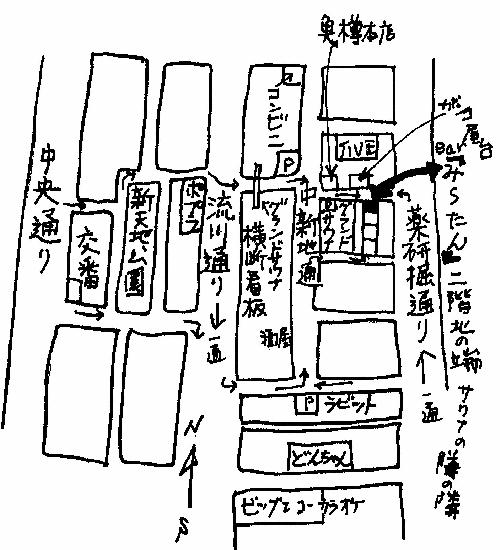 奥樽本店
中央通り
交番
新天地公園
ポプラ
流川通り→一通
コンビニ
P
グランドサウナ
横断看板
酒屋
中新地通
グランドサウナ
薬研堀通り→一通
屋台
Bar みらたん 二階北の端 サウナの隣の隣
P ラビット
どんちゃん
ビッグエコーカラオケ
N
S